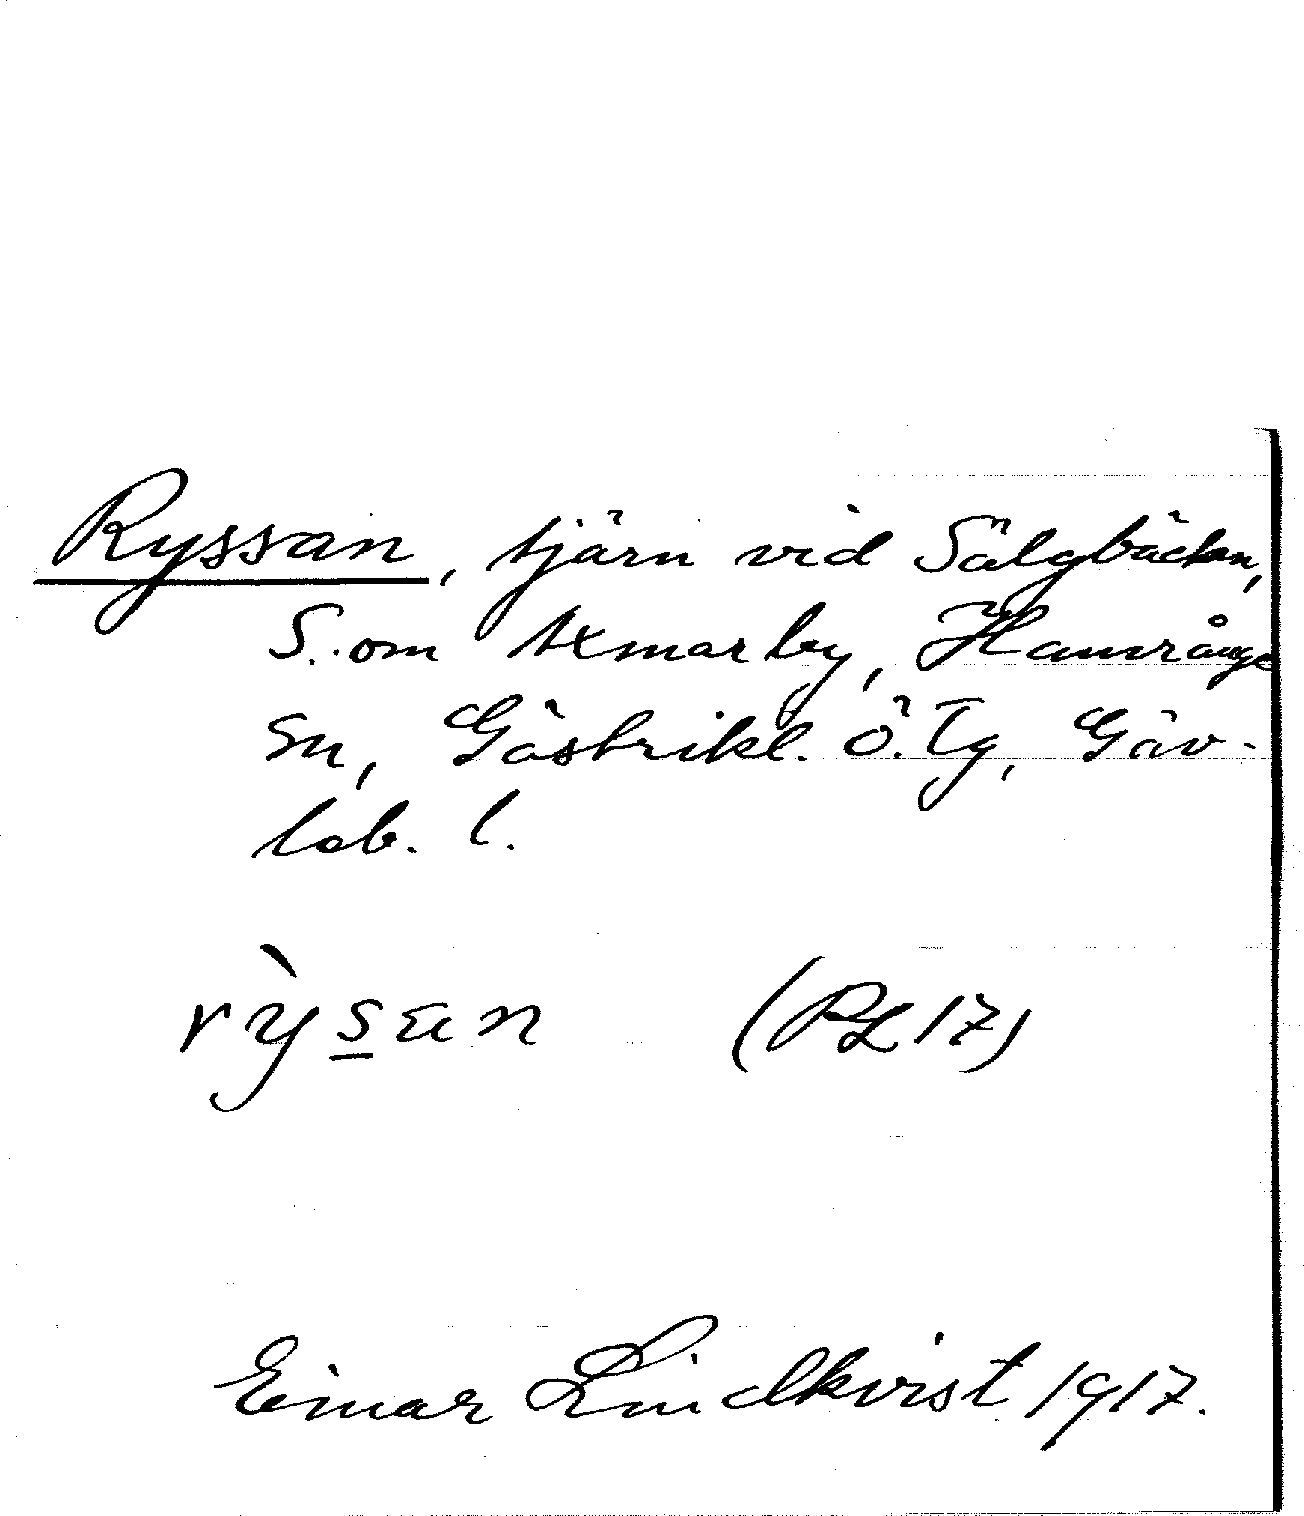 Ryssan, tjärn vid Sälgbäcken,
S. om Axmarby, Hamrånge
sn, Gästrikl. Ö. Tg, Gäv-
leb. l.
rỳsan (RL 17)
Einar Lindkvist 1917.